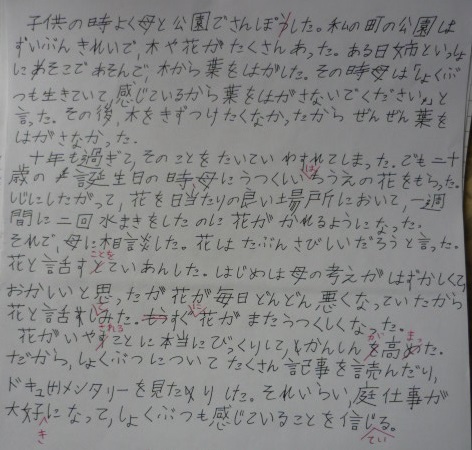 子供の時よく母と公園でさんぽうした。私の町の公園は
ずいぶんきれいで、木や花がたくさんあった。ある日姉といっしょ
にあそこであそんで、木から葉をはがした。その時母は「しょくぶ
つも生きていて、感じているから葉をはがさないでください。」と
言った。その後、木をきずつけたくなかったからぜんぜん葉を
はがさなかった。
十年も過ぎて、そのことをたいていわすれてしまった。でも二十
歳の誕生日の時母にうつくしいはちうえの花をもらった。
しじにしたがって、花を日当たりの良い場所において、一週
間に二回水まきをしたのに花がかれるようになった。
それで、母に相談した。花はたぶんさびしいだろうと言った。
花と話すことをていあんした。はじめは母の考えがはずかしくて、
おかしいと思ったが花が毎日どんどん悪くなっていたから
花と話してみた。すぐ花がまたうつくしくなった。
花がいやされることに本当にびっくりして、かんしんが高まった。
だから、しょくぶつについてたくさん記事を読んだり、
ドキュメンタリーを見たりした。それいらい、庭仕事が
大好きになって、しょくぶつも感じていることを信じている。